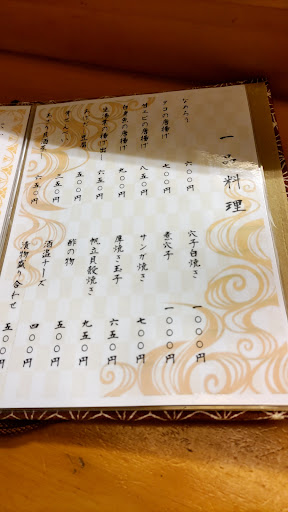 一品料理
なめろう 六〇〇円
タコの唐揚げ 七〇〇円
甘エビの唐揚げ 八五〇円
白身魚の唐揚げ 九〇〇円
六五〇円
二五〇円
六五〇円
穴子白焼き 一〇〇〇円
煮穴子 一〇〇〇円
サンガ焼き 七〇〇円
厚焼き玉子 六五〇円
帆立貝殻焼き 九五〇円
酢の物 五〇円
酒盗チーズ 四〇〇円
漬物盛り合わせ 五〇円